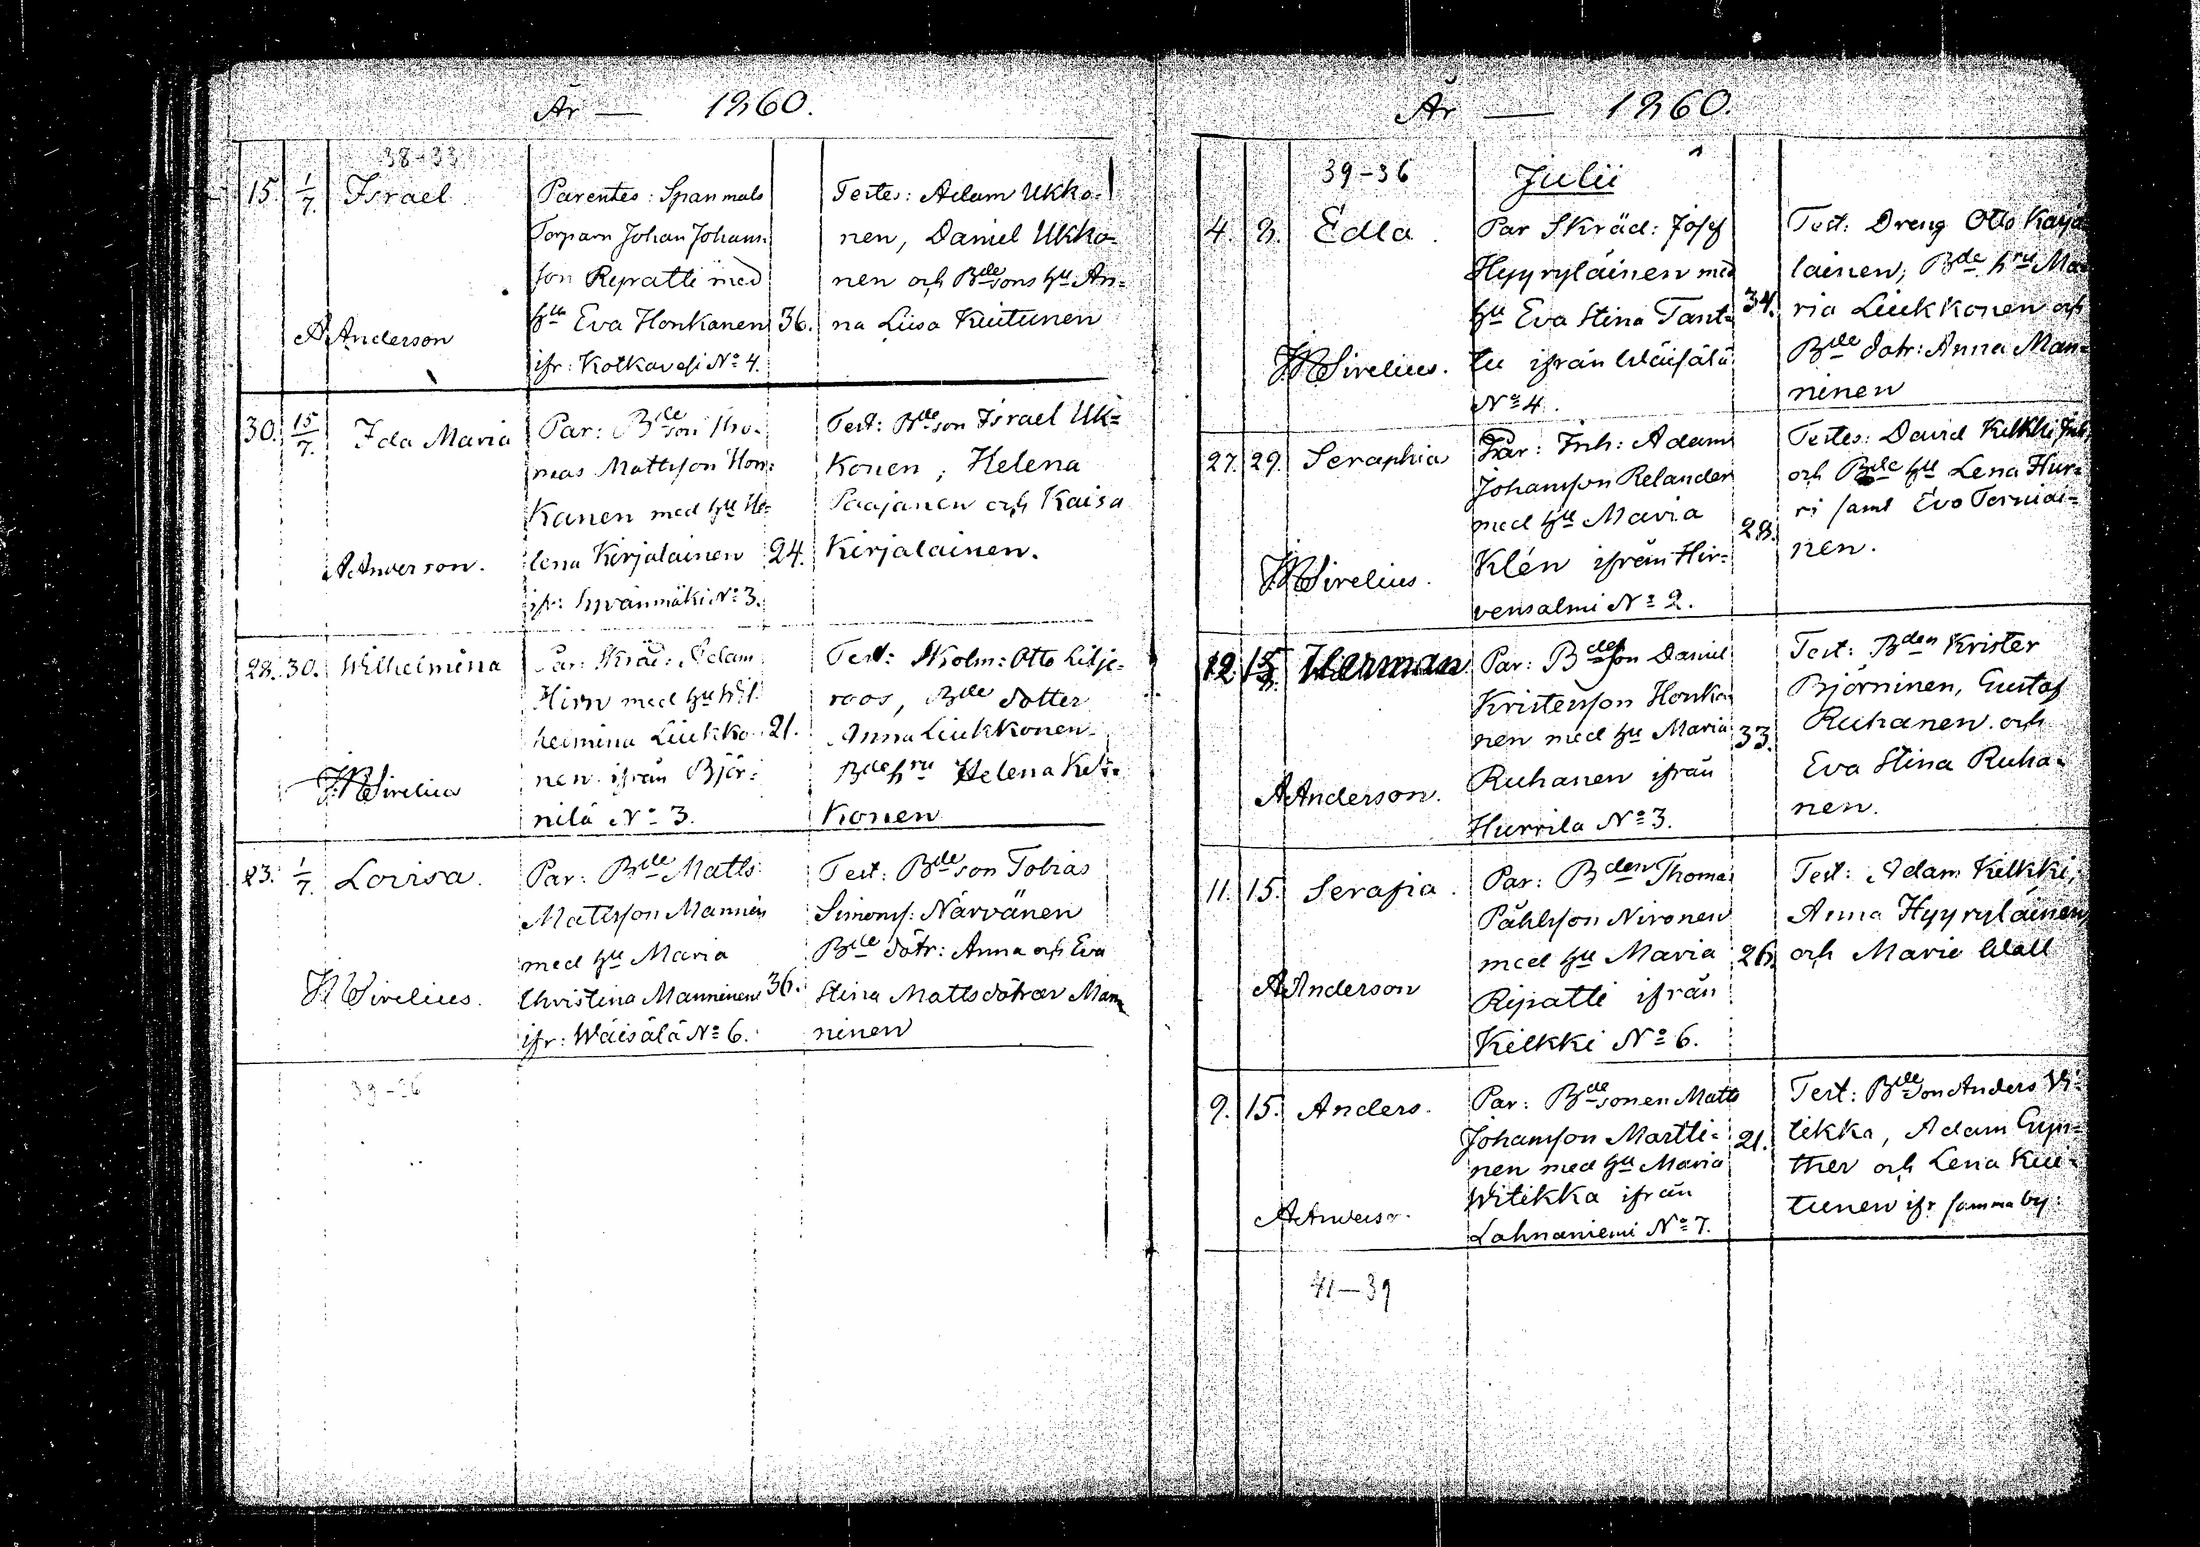 År — 1860.
38-33
15. 1/7. Israel
Parentes: Spanmåls
Torparn Johan Johans:
son Repatti med
hu Eva Honkanen 36.
ifr: Kotkavesi No 4.
A Anderson
Testes: Adam Ukko-
nen, Daniel Ukko-
nen och Bdesons hu An-
na Liisa Kuitunen
30. 15/7. Ida Maria
Par: Bdeson Tho-
mas Mattsson Hon-
kanen med hu He-
lena Kirjalainen 24.
ifr: No 3.
A Anderson.
Test: Bdeson Israel Uk=
konen, Helena
Paajanen och Kaisa
Kirjalainen.
28. 30. Wilhelmina
Par: Skräd: Adam
Hirn med hu Wil
helmina Liukko- 21.
nen ifrån Björ-
nilä No 3.
Sirelius
Test: Skolm: Otto Lilje-
roos, Bde dotter
Anna Liukkonen
Bde hru Helena
konen
23. 1/7. Lovisa.
Par: Bde Matts
Mattsson Mannin
med hu Maria
Christina Manninen 36.
ifr: Wäisälä No 6.
Sirelius.
Test: Bdeson Tobias
Simons: Närvänen
Bde dötr: Anna och Eva
Stina Mattsdötrar Man
ninen
39-36
År — 1860.
39-36
Julii
4. 8. Edla.
Par Skräd: Josef
Hyyryläinen med
hu Eva Stina Tant- 34.
tu ifrån Wäisälä
No 4.
Sirelius.
Test: Dreng Otto Karja
lainen, Bde hru Ma-
ria Liukkonen och
Bde dotr: Anna Man-
ninen
27. 29. Seraphia
Par: Inh: Adam
Johansson Relander
med hu Maria 28.
Klén ifrån Hir-
vensalmi No 2.
Sirelius.
Testes: David Kilkki Inh.
och Bde hu Lena Hur-
ri samt Eva Terniai-
nen.
12. 15/8. Herman
Par: Bdesson Daniel
Kristersson Honka-
nen med hu Maria 33.
Ruhanen ifrån
Hurrila No 3.
A Anderson.
Test: Bden Krister
Björninen, Gustaf
Ruhanen och
Eva Stina Ruha-
nen.
11. 15. Serafia.
Par: Bden Thomas
Påhlsson Nironen
med hu Maria 26.
Ripatti ifrån
Kilkki No 6.
A Anderson
Test: Adam Kilkki,
Anna Hyyryläinen
och Marie Wall
9. 15. Anders.
Par: Bdesonen Matts
Johansson Martti- 21.
nen med hu Maria
Witikka ifrån
Lahnaniemi No 7.
A Anderso.
Test: Bdeson Anders Wi-
tikka, Adam Gyn-
ther och Lena Kui-
tunen ifr samma by.
41-39